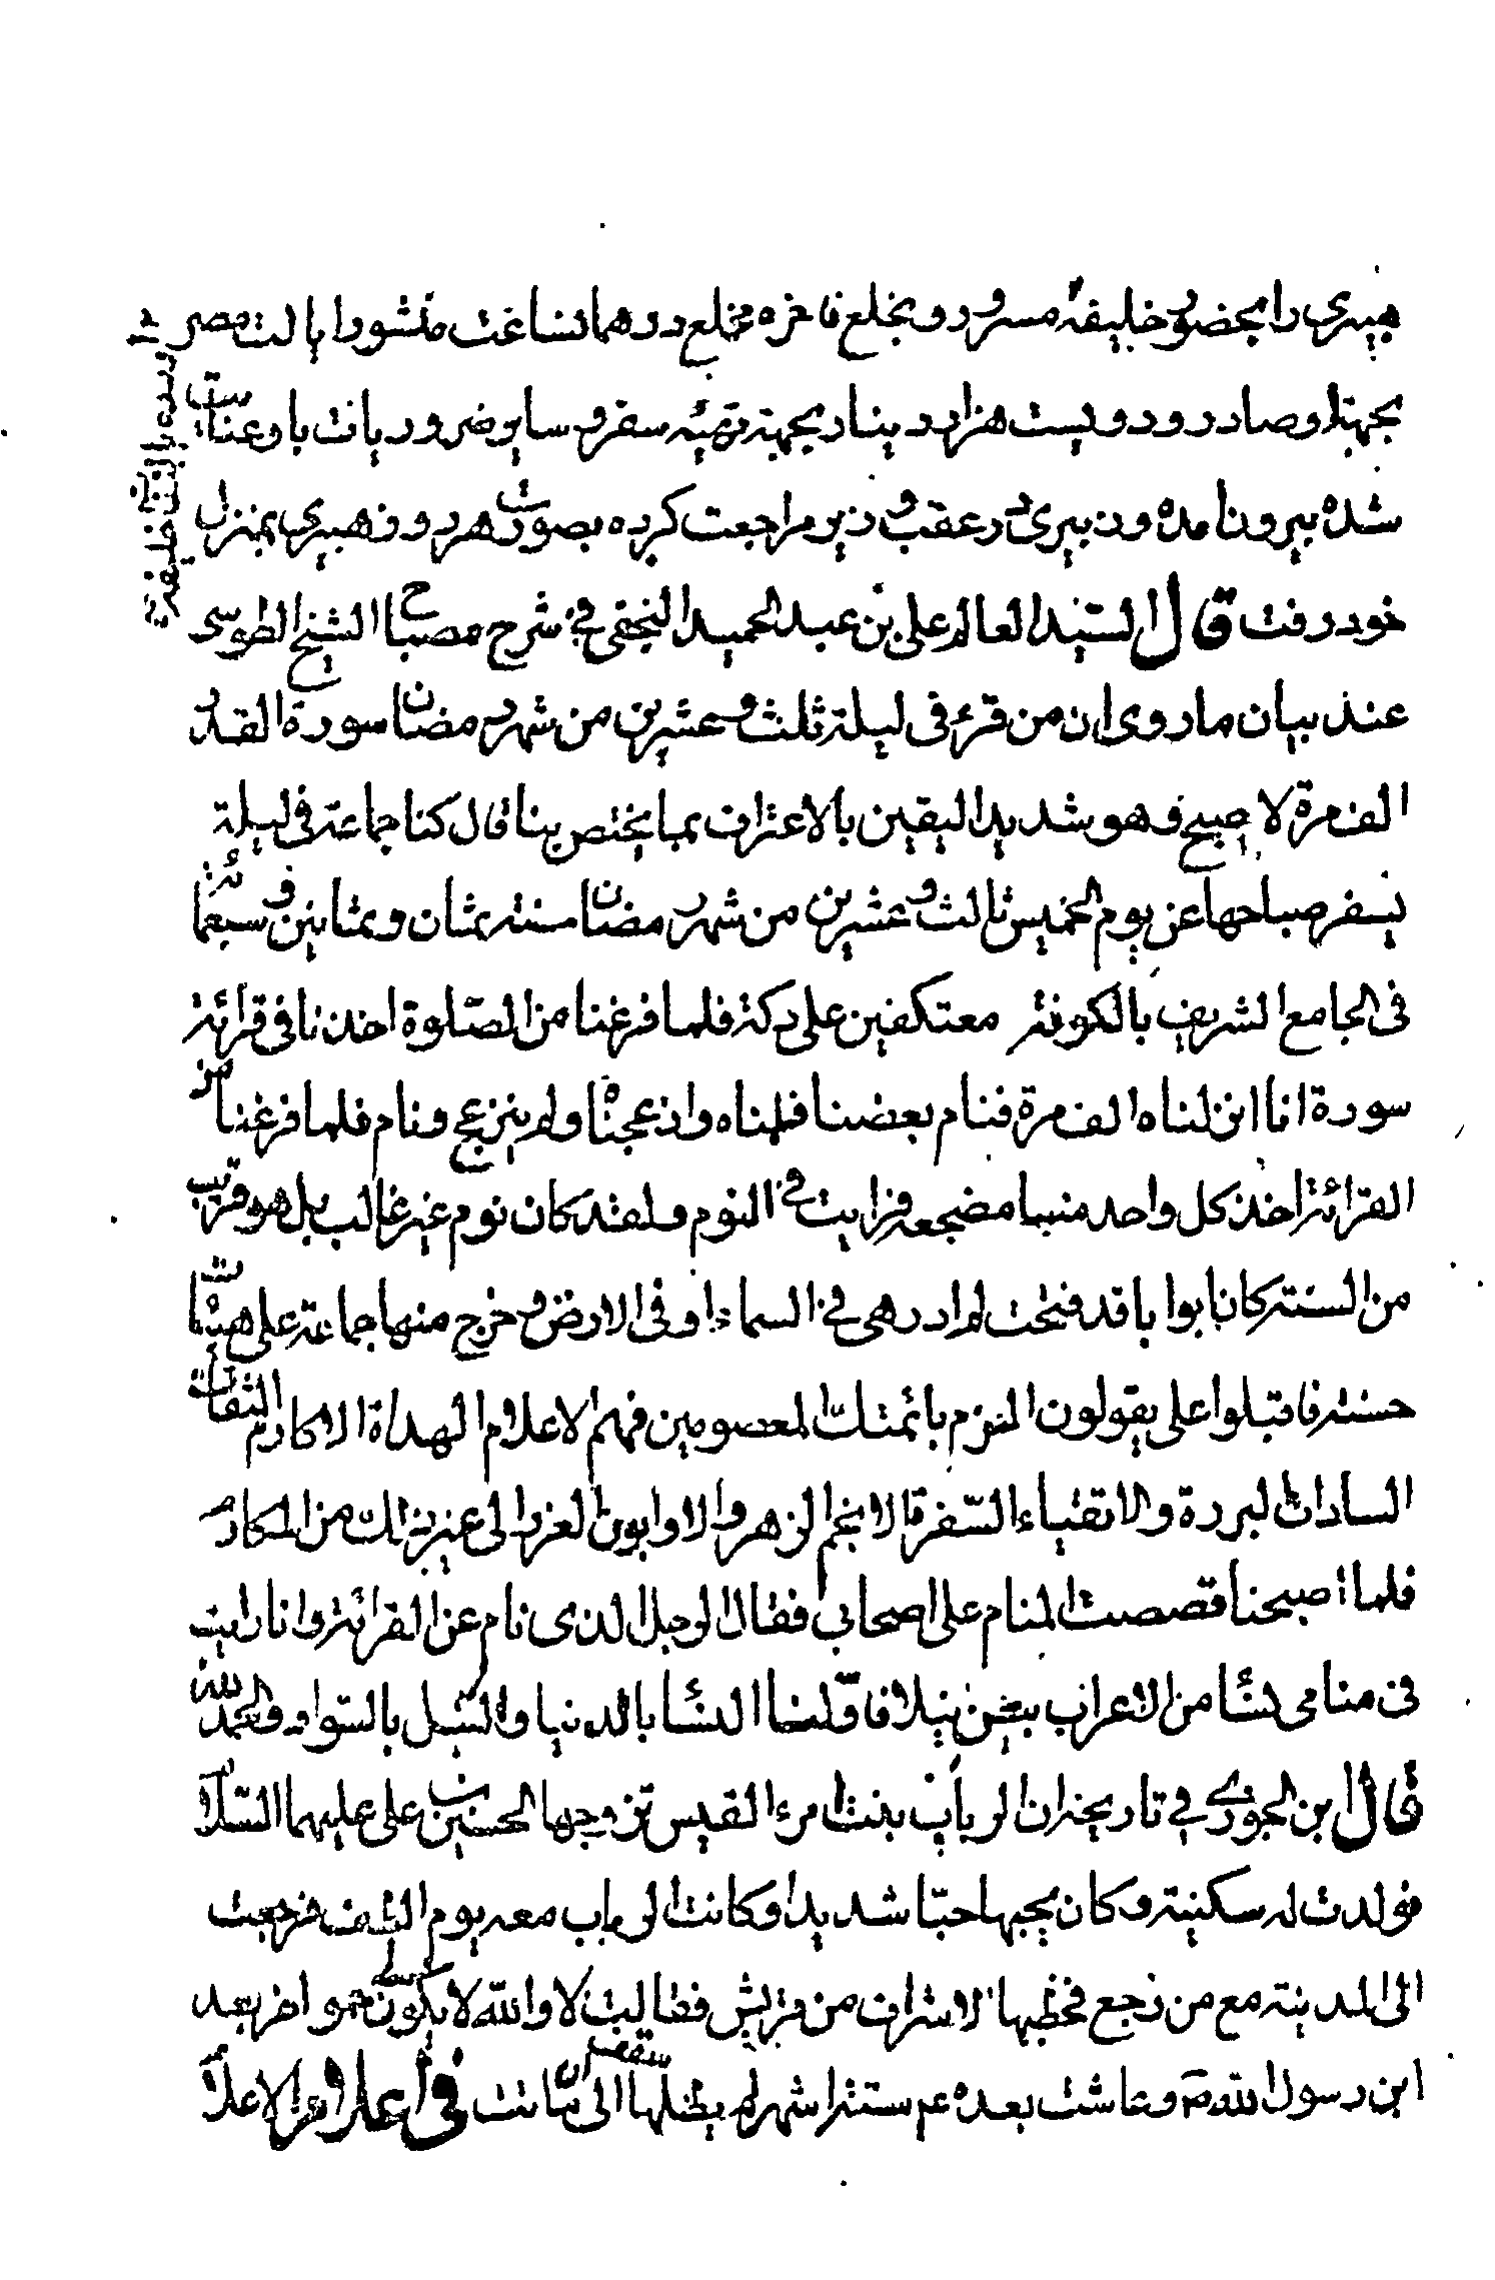 هبیری را بحضور خلیفه مسرور و بخلع فاخره مخلع در همانساعت منشور ایالت مصر
بجهة او صادر و دویست هزار دینار بجهة تهیّه سفر و سایر ضروریات باو عنایت
شده بیرون آمده و زبیری در عقب وزیر مراجعت کرده بصورت هر دو زهیری بمنزل
خود رفت قال السیّد العالم علی بن عبد الحمید النجفی فی شرح مصباح الشیخ الطوسی
عند بیان ما روی ان من قرء فی لیلة ثلث و عشرین من شهر رمضان سورة القدر
الف مرة لاصبح و هو شدید الیقین بالاعتراف بما یختص بنا قال کنا جماعة فی لیلة
یسفر صباحها عن یوم الخمیس ثالث و عشرین من شهر رمضان سنة ثمان و ثمانین و سبعمائة
فی الجامع الشریف بالکوفة معتکفین علی دکة فلما فرغنا من الصّلوة اخذنا فی قرائة
سورة انا انزلناه الف مرة فنام بعضنا فلمناه و ازعجناه و لم ینزعج و نام فلما فرغنا من
القرائة اخذ کل واحد منا مضجعه فرایت فی النوم و لقد کان نوم غیر غالب بل هو قریب
من السنة کان ابوابا قد فتحت لم ادر هی فی السماء او فی الارض و خرج منها جماعة علی هیئات
حسنة فاقبلوا علی یقولون التزم بائمتک المعصومین فهم الاعلام الهداة الاکارم الثقات
السادات البررة و الاتقیاء السّفرة الانجم الزهر و الاوابون الغرر الی غیر ذلک من المکارم
فلما اصبحنا قصصت المنام علی اصحابی فقال الرجل الذی نام عن القرائة و انا رایت
فی منامی نسا من الاعراب یبعن نیلا فاوّلنا النسا بالدنیا و النیل بالسواد و الحمد لله
قال ابن الجوزی فی تاریخه ان الرباب بنت امرء القیس تزوجها الحسین بن علی علیهما السّلام
فولدت له سکینة و کان یحبها حبّا شدیدا و کانت الرباب معه یوم الطف فرجعت
الی المدینة مع من رجع فخطبها الاشراف من قریش فقالت لا والله لا یکون حمو اخر بعد
ابن رسول الله ص و عاشت بعده ع ستة اشهر لم یظلها سقف الی ان ماتت فی اعلام الاعلام